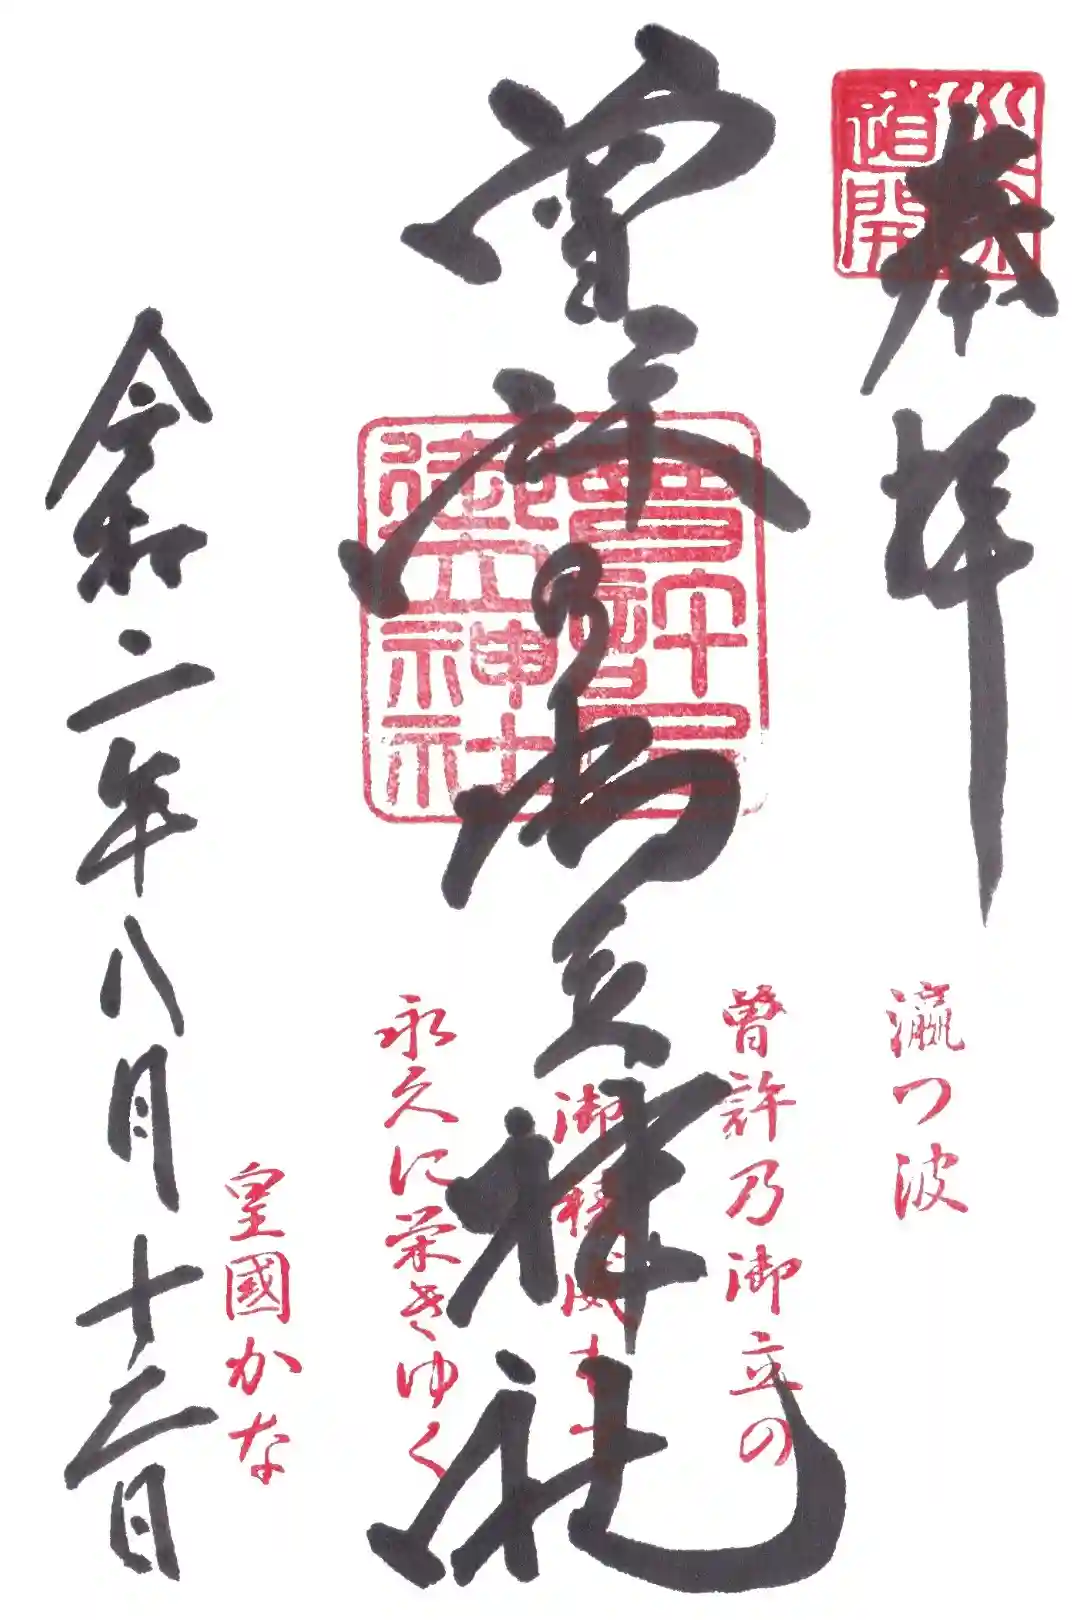 奉拝
道開
曽許乃御立神社
曽許乃御立神社
瀛つ波
曽許乃御立の
御稜威
永久に栄えゆく
皇國かな
令和二年八月十二日